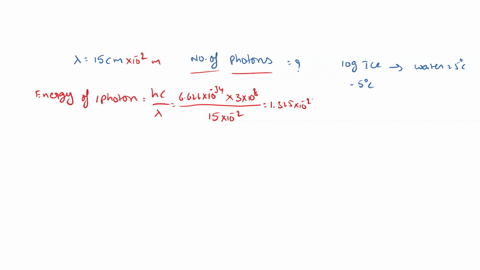 λ = 15cm x10⁻² m No. of photons = ?
10g Ice → water = 5°c
-5°c
Energy of 1photon = hc/λ = 6.626x10⁻³⁴ x 3x10⁸ / 15x10⁻² = 1.325x10⁻²